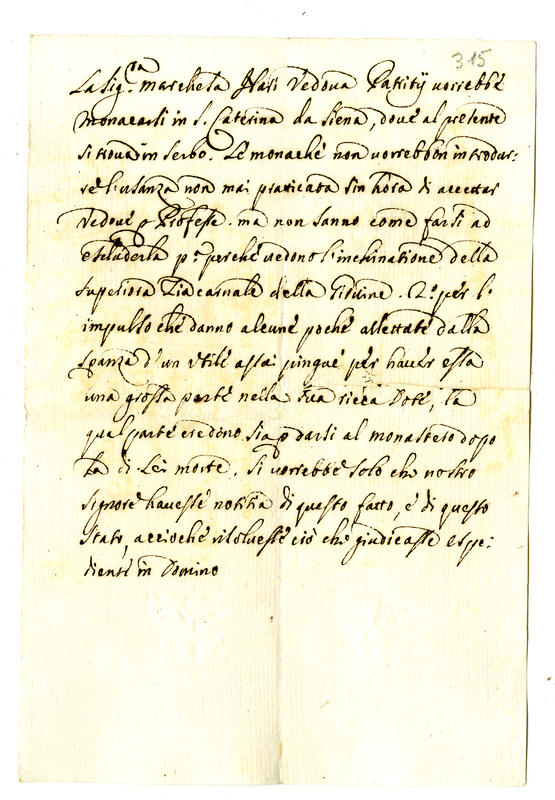 315
La Sig.ra Marchesa Nari Vedova Patritij vorrebbe
Monacarsi in S. Caterina da Siena, dove al presente
si trova in serbo. Le monache non vorrebbon introdur:
re l'usanza non mai praticata sin hora di accettar
Vedove p Professe. ma non sanno come farsi ad
escluderla p.o perche vedono l'inchinatione della
Superiora Zia carnale della Giovine. 2.o per l'
impulso che danno alcune poche allettate dalla
speranza d'un utile assai pingue per haver essa
una grossa parte nella sua ricca Dote, la
qual parte credono sia p darsi al monastero dopo
la di Lei morte. Si vorrebbe solo che nostro
Signore havesse notitia di questo fatto, e di questo
stato, accioche risolvesse ciò che giudicasse espe:
diente in Domino